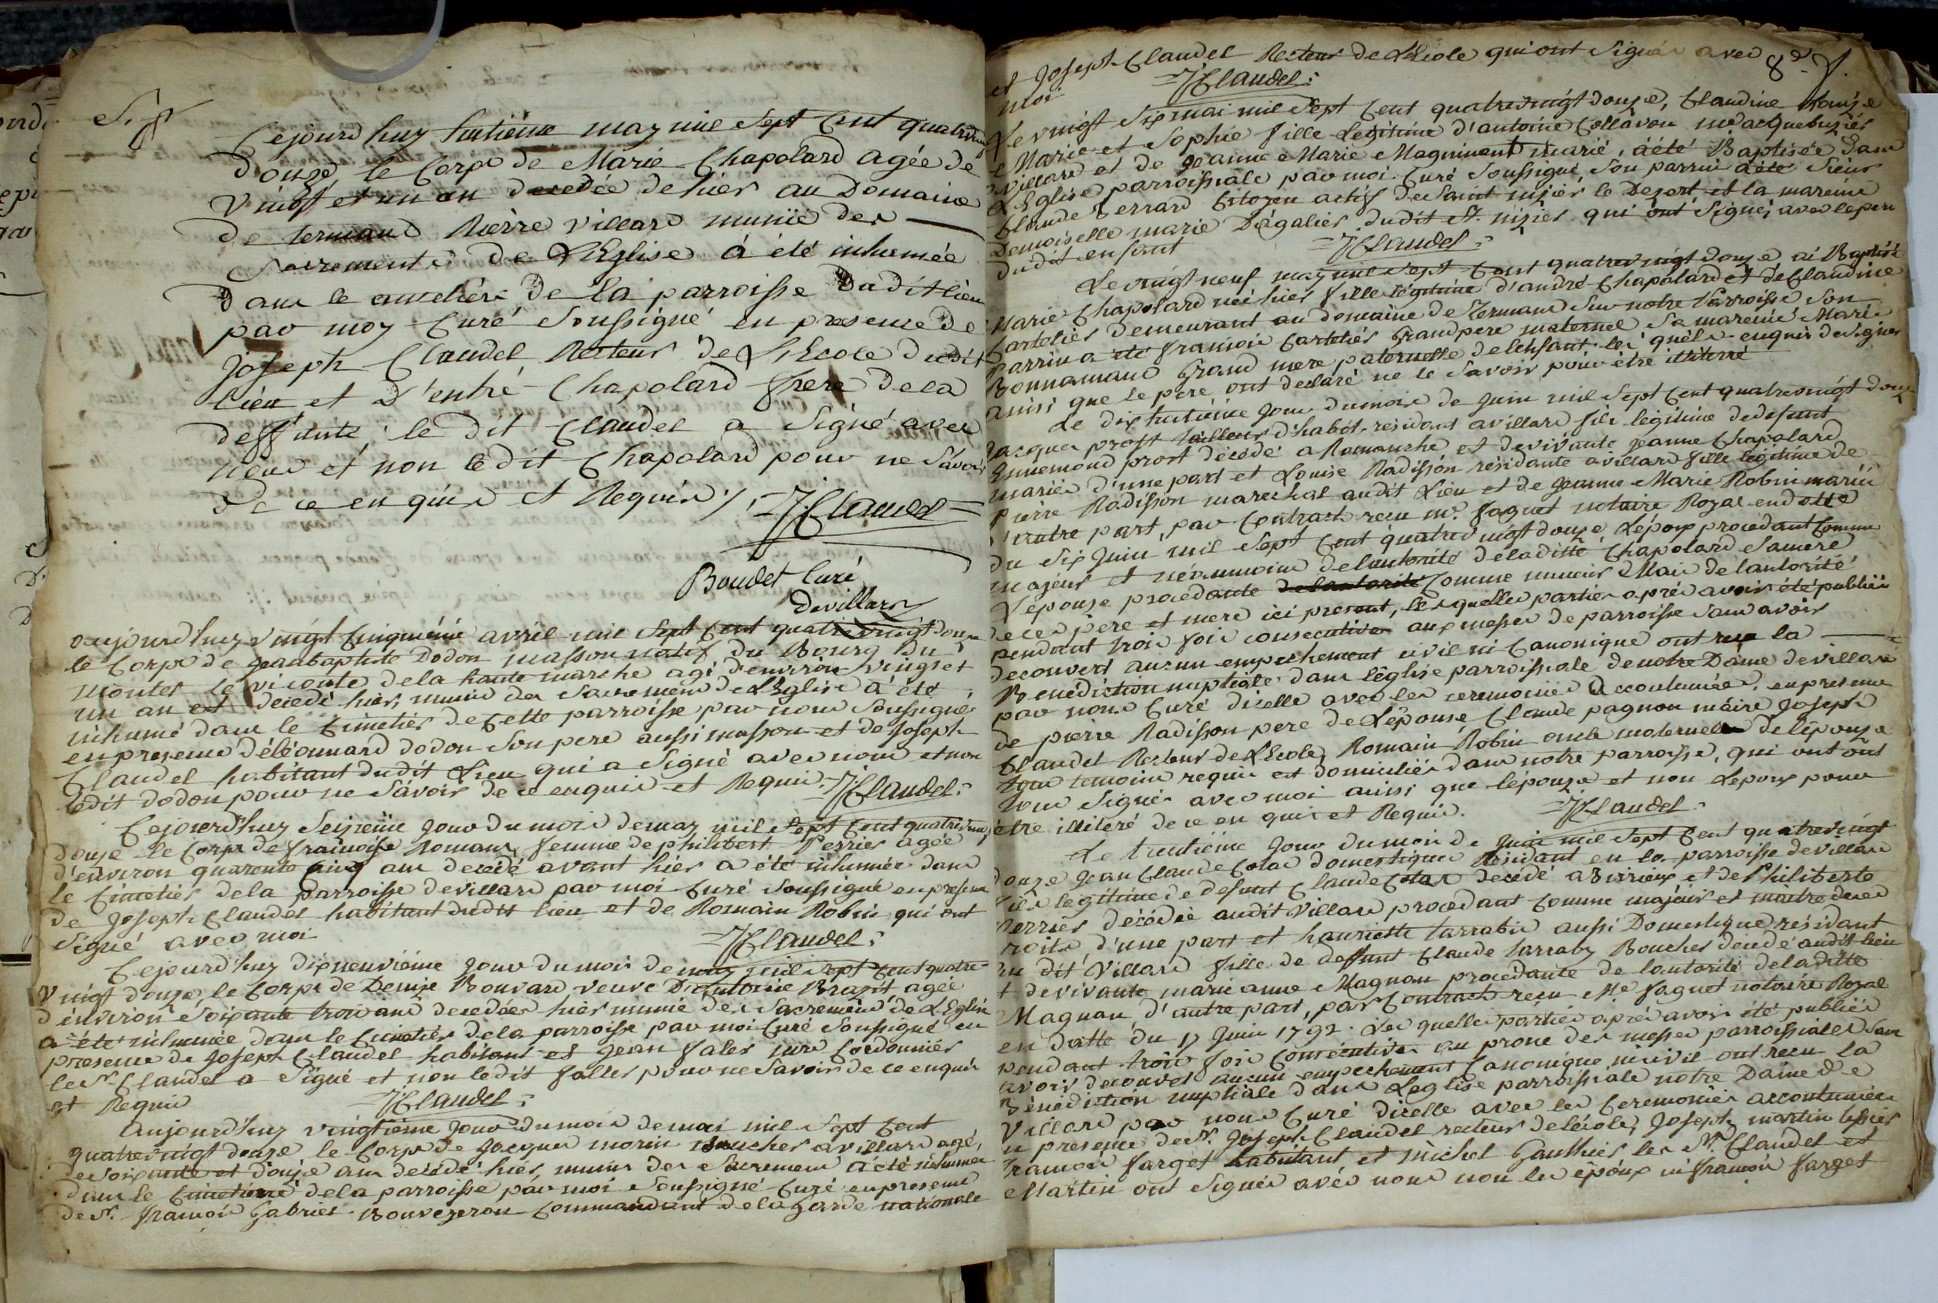 Cejourd'huy huitième may mil Sept Cent quatrevingt
Douze le Corps de Marie Chapolard agée de
Vingt et un an decedée de hier au Domaine
de termand Pierre villard munïe des
Sacrements de L'Eglise à été inhumée
Dans le cimetière de la parroisse Dudit lieu
par moy Curé Soussigné en presence de
Joseph Claudel Recteur de L'Ecole dudit
lieu et D'entré Chapolard frere de la
deffunte, le dit Claudel a Signé avec
nous et non ledit Chapolard pour ne Savoir
de ce enquis et Requis /. J Claudel
Boudet Curé
Devillars
aujourd'huy vingt Cinquiéme avril mil Sept Cent quatrevingt Douze
le Corps de jeanbaptiste Dodon masson natif du Bourg du
montet le viconte dela haute marche agé d'environ vingt et
un an est decedé hier, munis des Sacrement de L'Eglise à été
inhumé dans le Cimetier de Cette parroisse par nous Soussigné
en presence de léonnard dodon Son pere aussi masson et de Joseph
Claudel habitant dudit Lieu qui a Signé avec nous et non
ledit dodon pour ne Savoir de ce enquis et Requis. J Claudel
Cejourd'huy Seizieme Jour du mois de may mil Sept Cent quatrevingt
douze le Corps de françoise Romans femme de philibert Perrier agée
d'environ quarente cinq ans decedé avant hier a été inhumée dans
le Cimetier dela parroisse devillars par moi Curé Soussigné en presence
de Joseph Claudel habitant dudit lieu et de Romain Robin qui ont
Signé avec moi J Claudel
Cejourd'huy dixneuvième Jour du mois de may mil Sept Cent quatre
vingt douze le Corps de Denize Bouvard veuve D'Antoine Brazit agée
d'environ Soixante trois ans decedée hier munie des Sacremens de L'Eglise
a été inhumée dans le Cimetier dela parroisse par moi Curé Soussigné en
presence de Joseph Claudel habitant et jean falles mre Cordonnier
le Sr. Claudel a Signé et non ledit falles pour ne Savoir de ce enquis
et Requis J Claudel
aujourd'huy vingtième Jour du mois de mai mil Sept Cent
quatrevingt douze le Corps de Jacques morin boucher a villard agé
de Soixante et douze ans decedé hier, munis des Sacremens a été inhumée
dans le Cimetiere dela parroisse par moi Soussigné Curé en presence
de Sr. françois Gabriel Bouvezeron Commandant dela garde nationale
et Joseph Claudel Recteur de L'Ecole qui ont Signés avec
moi J Claudel
8e
Le vingt Six mai mil Sept Cent quatrevingt douze, Claudine Louise
Marie et Sophie fille Legitime d'antoine Collavon md acquebuzier
villard et de Jeanne Marie Magninent marié, a été Baptisée dans
L'Eglise parroissiale par moi Curé Soussigné, Son parrin a été Sieur
Claude Perrard Citoyen actif de Saint nizier le Desert et la mareine
Demoiselle marie Dégalier dudit St. nizier qui ont Signés avec le pere
dudit enfant J Claudel
Le vingt neuf may mil Sept Cent quatrevingt douze ai Baptisé
Marie Chapolard née hier fille légitime d'andré Chapolard et de Claudine
Cartelier demeurant au domaine de Termand Sur notre Parroisse Son
Parrin a été françois Cartelier Grandpere maternel Sa mareine Marie
Bonnamand Grand mere paternelle de lenfant les quels enquis de Signer
ainsi que le pere ont declaré ne le Savoir pour être illiteré
Le dix huitième jour du mois de Juin mil Sept Cent quatrevingt douze
Jacques prost tailleur d'habit residant a villard fils légitime de defunt
Ennemond prost decedé a Romanche et de vivante jeanne Chapolard
mariés d'une part et Louise Radisson résidante a villard fille legitime de
Pierre Radisson marechal audit Lieu et de Jeanne Marie Robin mariés
d'autre part, par Contract recu me. faguet notaire Royal en datte
du Six Juin mil Sept Cent quatrevingt douze L'époux procédant Comme
majeur et néanmoins de lautorité de la ditte Chapolard Sa mere
L'epouse procedante de lautorité Comme mineur Mais de lautorité
de ces père et mere ici present, les quelles parties après avoir été publiées
pendant trois fois consecutives aux messes de parroisse Sans avoir
decouvert aucun empechement civil ni Canonique ont reçu la
Benediction nuptiale dans l'Eglise parroissiale de notre Dame devillars
par nous Curé dicelle avec les ceremonies accoutumées, en presence
de pierre Radisson pere de L'épouse Claude pagnon maire Joseph
Claudel Recteur de L'Ecole, Romain Robin oncle maternel de l'épouse
tous temoins requis et domiciliés dans notre parroisse, qui ont
tous Signés avec moi ainsi que l'epouse et non L'epoux pour
être illiteré de ce en quis et Requis. J Claudel
Le trentième Jour du mois de Juin mil Sept Cent quatrevingt
douze Jean Claude Colas domestique Résidant en la parroisse devillars
fils legitime de defunt Claude Colas decédé a Birieux et de Philiberte
Perrier décédée audit Villard procedant Comme majeur et maitre de ces
droits d'une part et henriette tarrabie aussi Domestique residant
au dit Villard fille de deffunt Claude tarraby Boucher decedé audit lieu
et de vivante marie anne Magnan procedante de lautorité dela ditte
Magnan d'autre part, par Contract reçu Me faguet notaire Royal
en datte du 17 Juin 1792. Les quelles parties après avoir été publiées
pendant trois fois Consécutives au prone des messes parroissiales Sans
avoir decouvet aucun empechement Canonique ni civil ont recu La
Bénédiction nuptiale dans L'eglise parroissiale notre Dame de
Villard par nous Curé dicelle avec les Ceremonies accoutumées
en presence de Sr. Joseph Claudel recteur de l'école, Joseph martin
françois farget habitant et michel Gauthier les Sr. Claudel et
Martin ont Signés avec nous non les époux ni françois farget